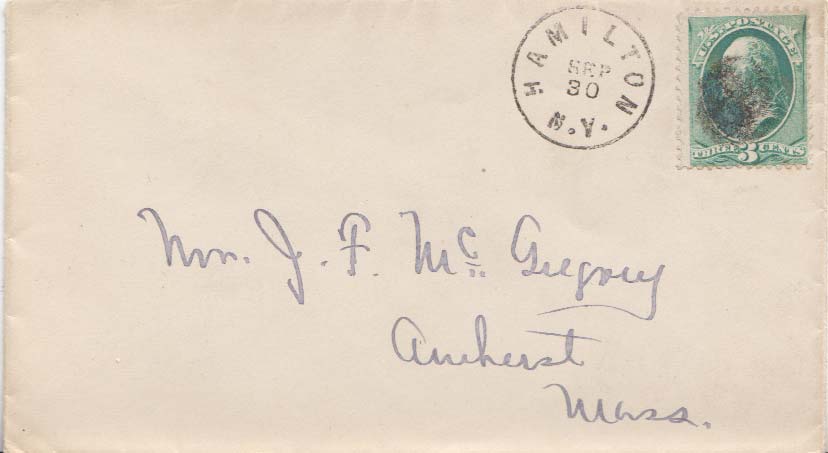 HAMILTON
SEP
30
N.Y.
U.S. POSTAGE
THREE 3 CENTS
J. F. McGregory
Amherst
Mass.